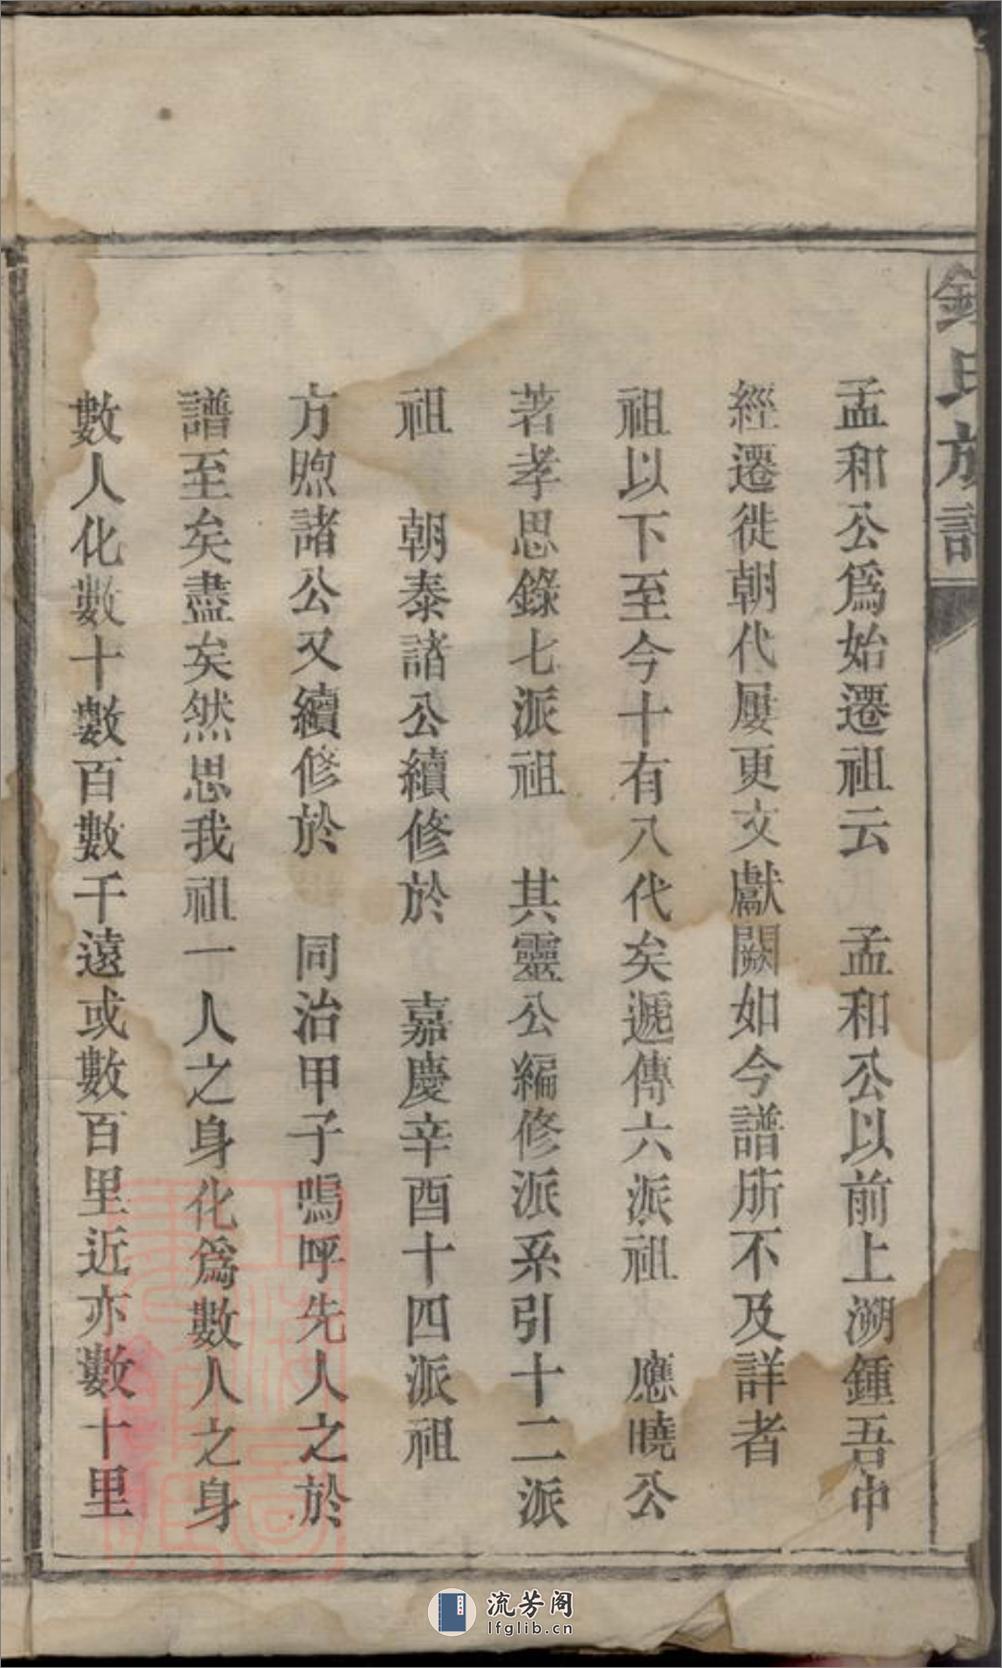 氏族譜
孟和公爲始遷祖云　孟和公以前上溯鍾吾中
經遷徙朝代屢更文獻闕如今譜所不及詳者
祖以下至今十有八代矣遞傳六派祖　應曉公
著孝思錄七派祖　其靈公編修派系引十二派
祖　朝泰諸公續修於　嘉慶辛酉十四派祖
方煦諸公又續修於　同治甲子嗚呼先人之於
譜至矣盡矣然思我祖一人之身化爲數人之身
數人化數十數百數千遠或數百里近亦數十里
流芳阁
lfglib.cn